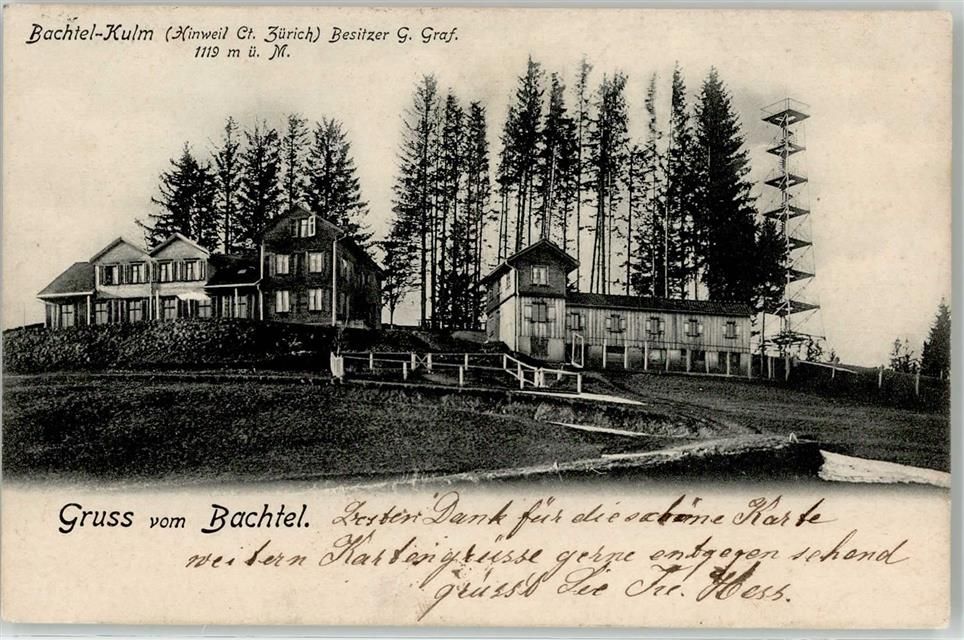 Bachtel-Kulm (Hinweil Ct. Zürich) Besitzer G. Graf.
1119 m ü. M.
Gruss vom Bachtel. Besten Dank für die schöne Karte
weitern Kartengrüsse gerne entgegen sehend
grüsst Sie Fre. Hess.